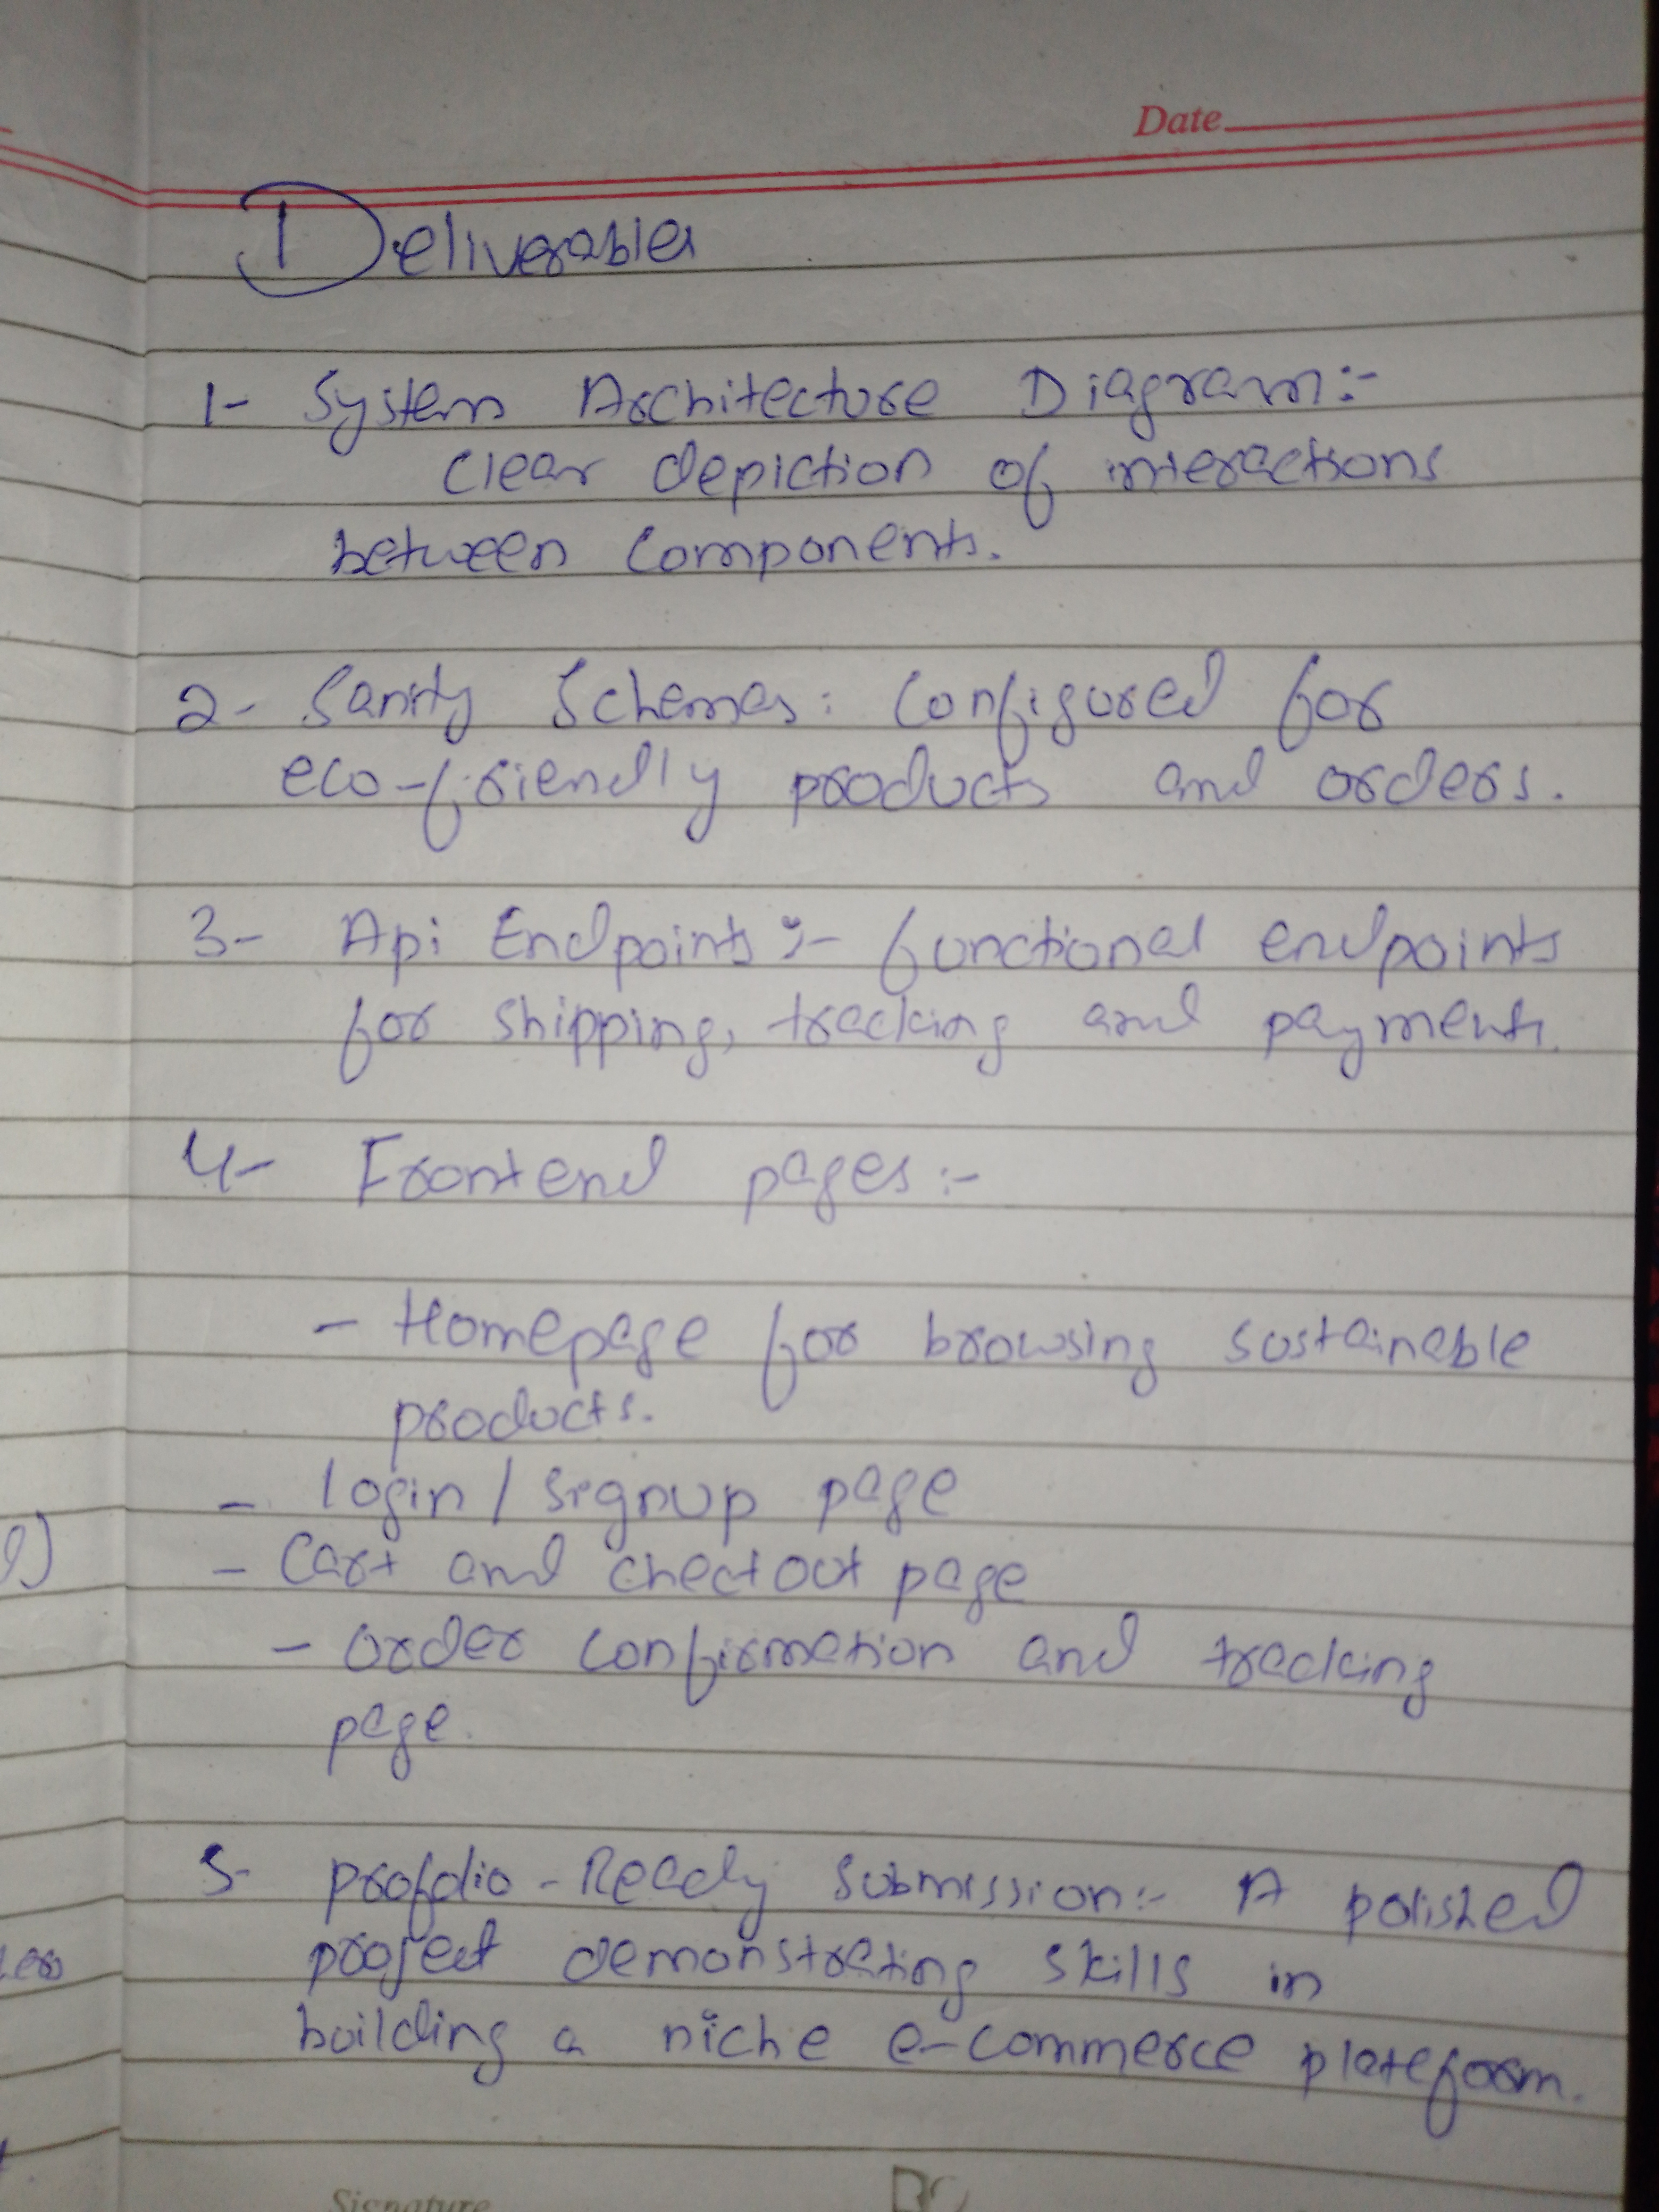 Date
Deliverables
1- System Architecture Diagram:-
clear depiction of interactions
between Components.
2- Sanity Schemas: Configured for
eco-friendly products and orders.
3- Api Endpoints:- functional endpoints
for shipping, tracking and payments.
4- Frontend pages:-
- Homepage for browsing sustainable
products.
- login / signup page
- Cart and checkout page
- order confirmation and tracking
page.
5- profolio-Ready Submission:- A polished
project demonstrating skills in
building a niche e-commerce plateform.
Signature